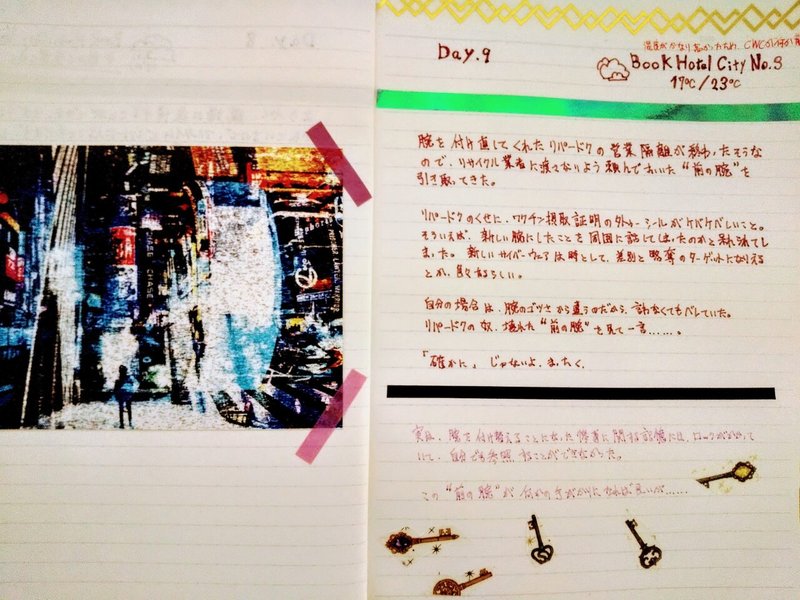 Day.9
Book Hotel City No.3
17℃/23℃
腕を付け直してくれたリパードクの営業隔離が終わったそうな
ので、リサイクル業者に渡さないよう頼んでおいた“前の腕”を
引き取ってきた。
リパードクのくせに、ワクチン摂取証明の シールがケバケバしいこと。
そういえば、新しい腕にしたことを周囲に話してしまったのかと 
ました。 新しいサイバーウェアは時として、差別と略奪のターゲットになりえる
とか、色々あるらしい。
自分の場合は、腕のゴツさから違うのだから、話さなくてもバレていた。
リパードクの奴、壊れた“前の腕”を見て一言……。
「確かに」 じゃないよ、まったく。
実は、腕を付け替えることになった に関する記憶には、ロックがかかって
いて、自分でも参照することができなかった。
この“前の腕”が何かの手がかりになれば良いが……